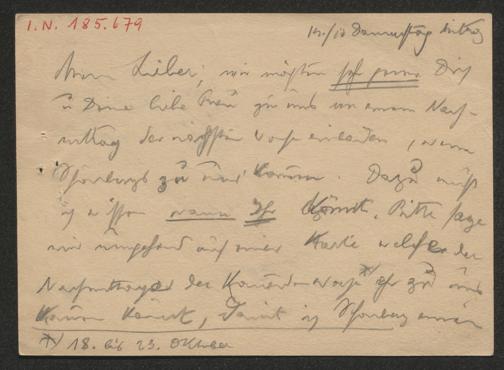 I.N. 185.679
14./10 Donnerstag Mittag
Mein Lieber, wir möchten sehr gerne Dich
u Deine liebe Frau zu uns an einem Nach-
mittag der nächsten Woche einladen, wenn
Schönbergs zu uns kommen. Dazu muß
ich wissen wann Ihr könnt. Bitte sage
mir umgehend auf einer Karte welche der
Nachmittage der kommenden Woche *) Ihr zu uns
kommen könnt, damit ich Schönberg einen
*) 18. bis 23. Oktober